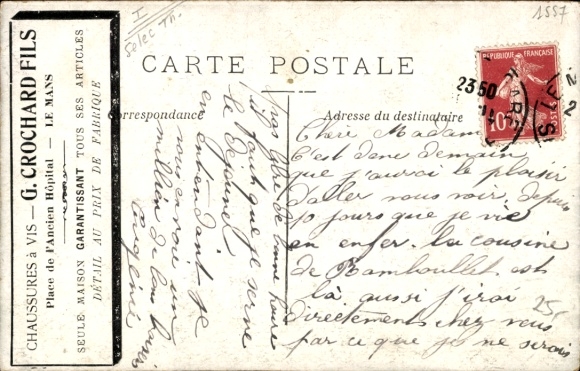 CHAUSSURES à VIS — G. CROCHARD FILS
Place de l'Ancien Hôpital — LE MANS
SEULE MAISON GARANTISSANT TOUS SES ARTICLES
DÉTAIL AU PRIX DE FABRIQUE
1557
CARTE POSTALE
Correspondance
Adresse du destinataire
RÉPUBLIQUE FRANÇAISE
POSTES
10
23 50
Chère Madame
C'est donc demain
que j'aurai le plaisir
d'aller vous voir, depuis
10 jours que je vis
en enfer. la cousine
de Rambouillet est
là aussi j'irai
directement chez vous
par ce que je ne serais
pas libre de bonne heure
il faut que je serve
le déjeuner
en attendant je
vous envoie un
million de bons baisers
Eugénie
25